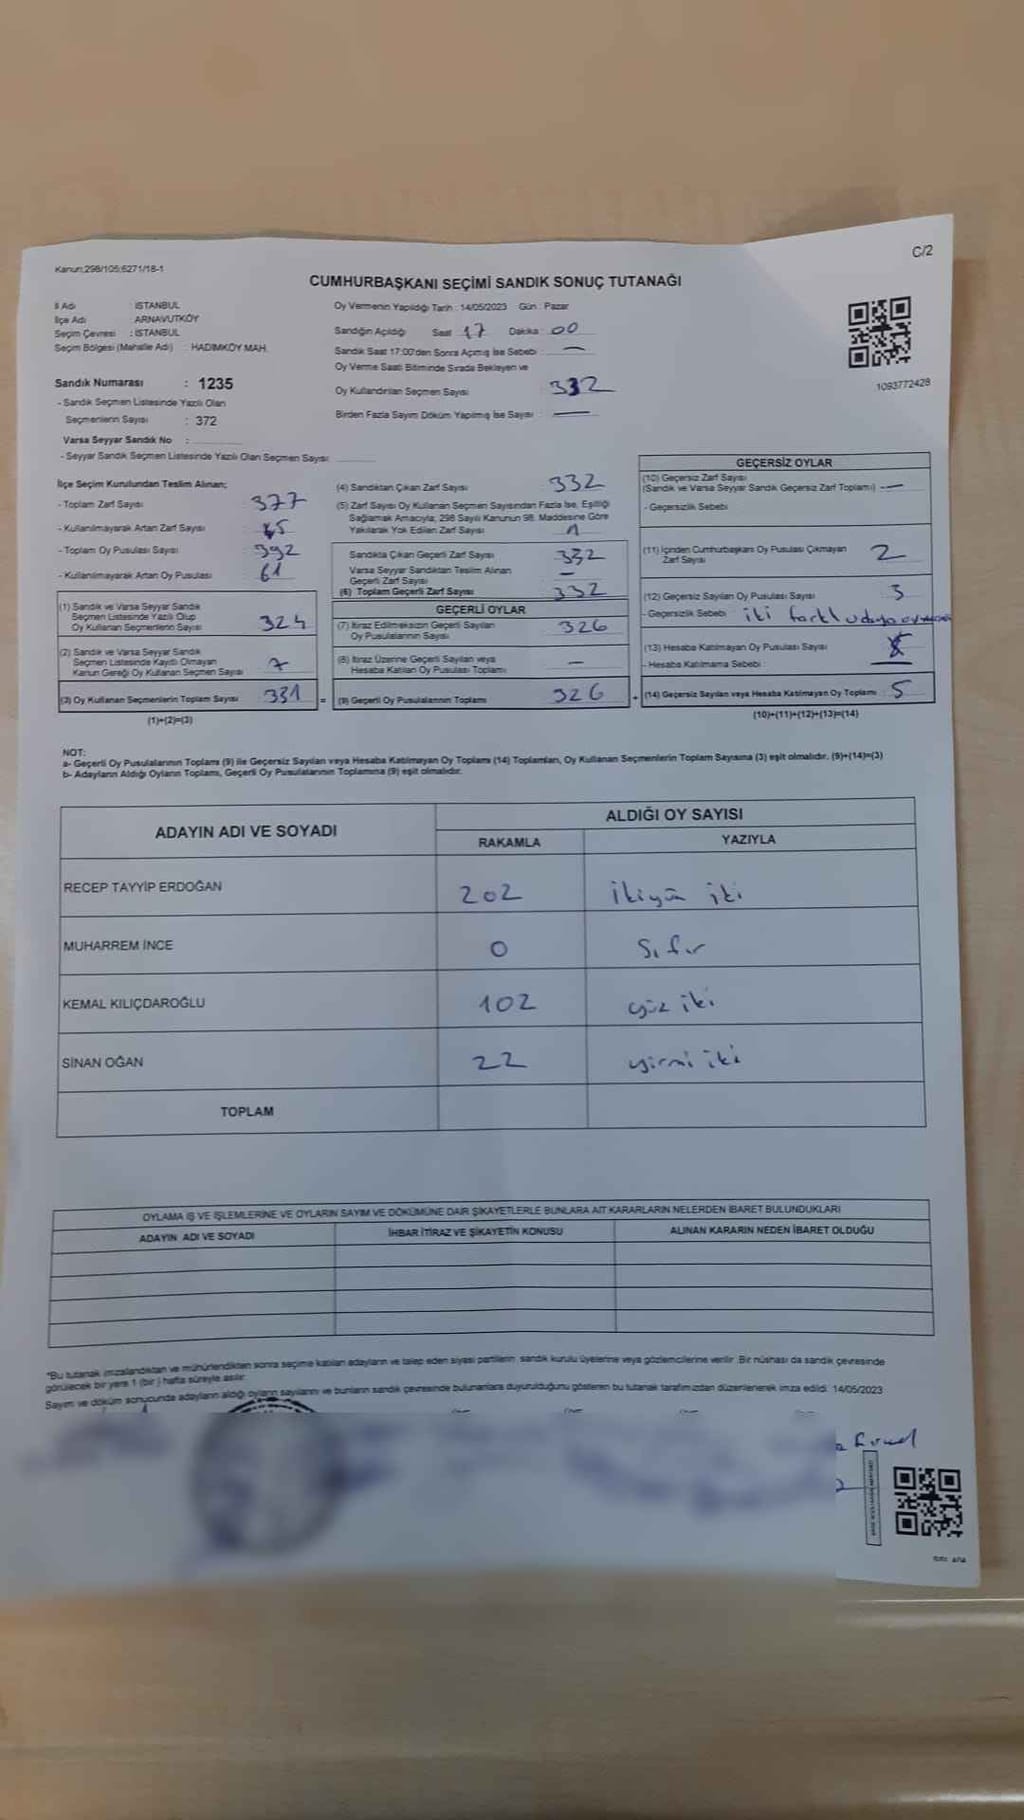 Kanun;298/105;6271/18-1
C/2
CUMHURBAŞKANI SEÇİMİ SANDIK SONUÇ TUTANAĞI
İl Adı : İSTANBUL
İlçe Adı : ARNAVUTKÖY
Seçim Çevresi : İSTANBUL
Seçim Bölgesi (Mahalle Adı) : HADIMKÖY MAH.
Sandık Numarası : 1235
- Sandık Seçmen Listesinde Yazılı Olan
Seçmenlerin Sayısı : 372
Varsa Seyyar Sandık No :
- Seyyar Sandık Seçmen Listesinde Yazılı Olan Seçmen Sayısı:
Oy Vermenin Yapıldığı Tarih : 14/05/2023 Gün : Pazar
Sandığın Açıldığı Saat 17 Dakika : 00
Sandık Saat 17:00'den Sonra Açmış İse Sebebi : —
Oy Verme Saati Bitiminde Sırada Bekleyen ve
Oy Kullandırılan Seçmen Sayısı : 332
Birden Fazla Sayım Döküm Yapılmış İse Sayısı : —
1093772428
İlçe Seçim Kurulundan Teslim Alınan;
- Toplam Zarf Sayısı : 377
- Kullanılmayarak Artan Zarf Sayısı : 45
- Toplam Oy Pusulası Sayısı : 392
- Kullanılmayarak Artan Oy Pusulası : 61
(1) Sandık ve Varsa Seyyar Sandık
Seçmen Listesinde Yazılı Olup
Oy Kullanan Seçmenlerin Sayısı : 324
(2) Sandık ve Varsa Seyyar Sandık
Seçmen Listesinde Kaydı Olmayan
Kanun Gereği Oy Kullanan Seçmen Sayısı : 7
(3) Oy Kullanan Seçmenlerin Toplam Sayısı : 331 =
(1)+(2)=(3)
(4) Sandıktan Çıkan Zarf Sayısı : 332
(5) Zarf Sayısı Oy Kullanan Seçmen Sayısından Fazla İse, Eşitliği
Sağlamak Amacıyla, 298 Sayılı Kanunun 98. Maddesine Göre
Yakılarak Yok Edilen Zarf Sayısı : 1
Sandıkta Çıkan Geçerli Zarf Sayısı : 332
Varsa Seyyar Sandıktan Teslim Alınan
Geçerli Zarf Sayısı : —
(6) Toplam Geçerli Zarf Sayısı : 332
GEÇERLİ OYLAR
(7) İtiraz Edilmeksizin Geçerli Sayılan
Oy Pusulalarının Sayısı : 326
(8) İtiraz Üzerine Geçerli Sayılan veya
Hesaba Katılan Oy Pusulası Toplamı : —
(9) Geçerli Oy Pusulalarının Toplamı : 326 +
GEÇERSİZ OYLAR
(10) Geçersiz Zarf Sayısı
(Sandık ve Varsa Seyyar Sandık Geçersiz Zarf Toplamı) : —
- Geçersizlik Sebebi
(11) İçinden Cumhurbaşkanı Oy Pusulası Çıkmayan
Zarf Sayısı : 2
(12) Geçersiz Sayılan Oy Pusulası Sayısı : 3
- Geçersizlik Sebebi : iki farklı adaya
(13) Hesaba Katılmayan Oy Pusulası Sayısı :
- Hesaba Katılmama Sebebi : —
(14) Geçersiz Sayılan veya Hesaba Katılmayan Oy Toplamı : 5
(10)+(11)+(12)+(13)=(14)
NOT:
a- Geçerli Oy Pusulalarının Toplamı (9) ile Geçersiz Sayılan veya Hesaba Katılmayan Oy Toplamı (14) Toplamları, Oy Kullanan Seçmenlerin Toplam Sayısına (3) eşit olmalıdır. (9)+(14)=(3)
b- Adayların Aldığı Oyların Toplamı, Geçerli Oy Pusulalarının Toplamına (9) eşit olmalıdır.
ADAYIN ADI VE SOYADI
ALDIĞI OY SAYISI
RAKAMLA YAZIYLA
RECEP TAYYİP ERDOĞAN 202 ikiyüz iki
MUHARREM İNCE 0 Sıfır
KEMAL KILIÇDAROĞLU 102 yüz iki
SİNAN OĞAN 22 yirmi iki
TOPLAM
OYLAMA İŞ VE İŞLEMLERİNE VE OYLARIN SAYIM VE DÖKÜMÜNE DAİR ŞİKAYETLERLE BUNLARA AİT KARARLARIN NELERDEN İBARET BULUNDUKLARI
ADAYIN ADI VE SOYADI İHBAR İTİRAZ VE ŞİKAYETİN KONUSU ALINAN KARARIN NEDEN İBARET OLDUĞU
*Bu tutanak imzalandıktan ve mühürlendikten sonra seçime katılan adayların ve talep eden siyasi partilerin, sandık kurulu üyelerine veya gözlemcilerine verilir. Bir nüshası da sandık çevresinde
görülecek bir yere 1 (bir) hafta süreyle asılır.
Sayım ve döküm sonucunda adayların aldığı oyların sayılarını ve bunların sandık çevresinde bulunanlara duyurulduğunu gösteren bu tutanak tarafımızdan düzenlenerek imza edildi. 14/05/2023